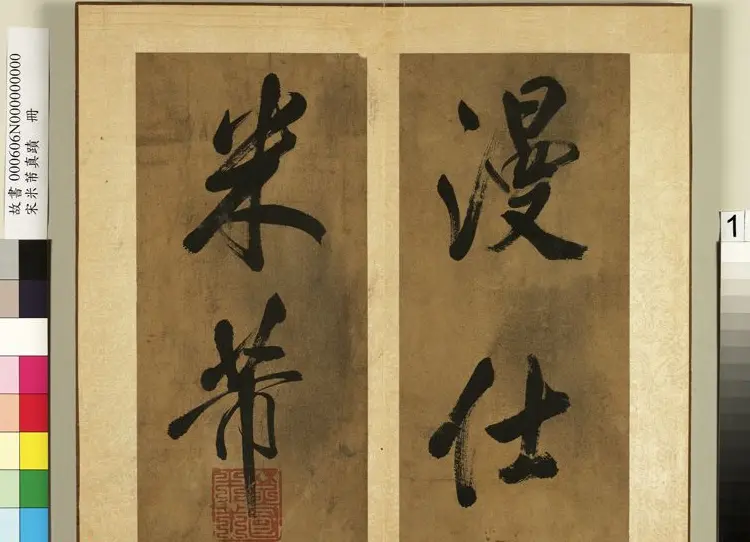 漫仕
米芾
故書 000606N000000000
宋米芾真蹟 冊
1